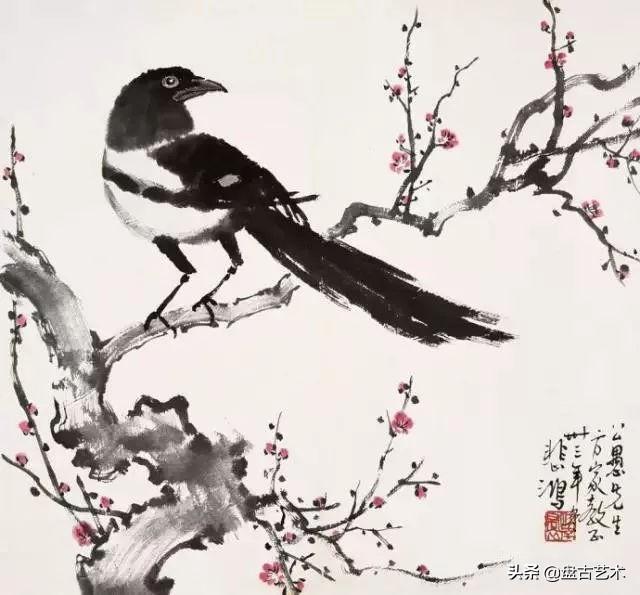 公愚先生
方家教正
卅三年
悲鴻
头条 @盘古艺术